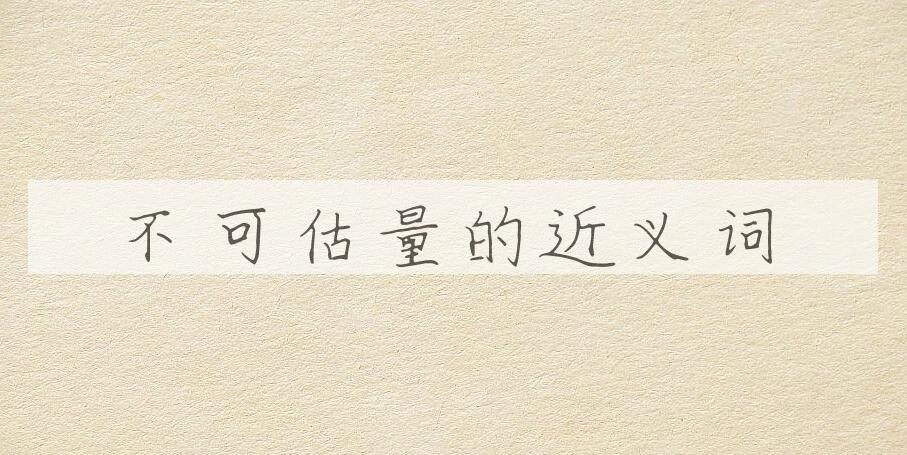 不可估量的近义词